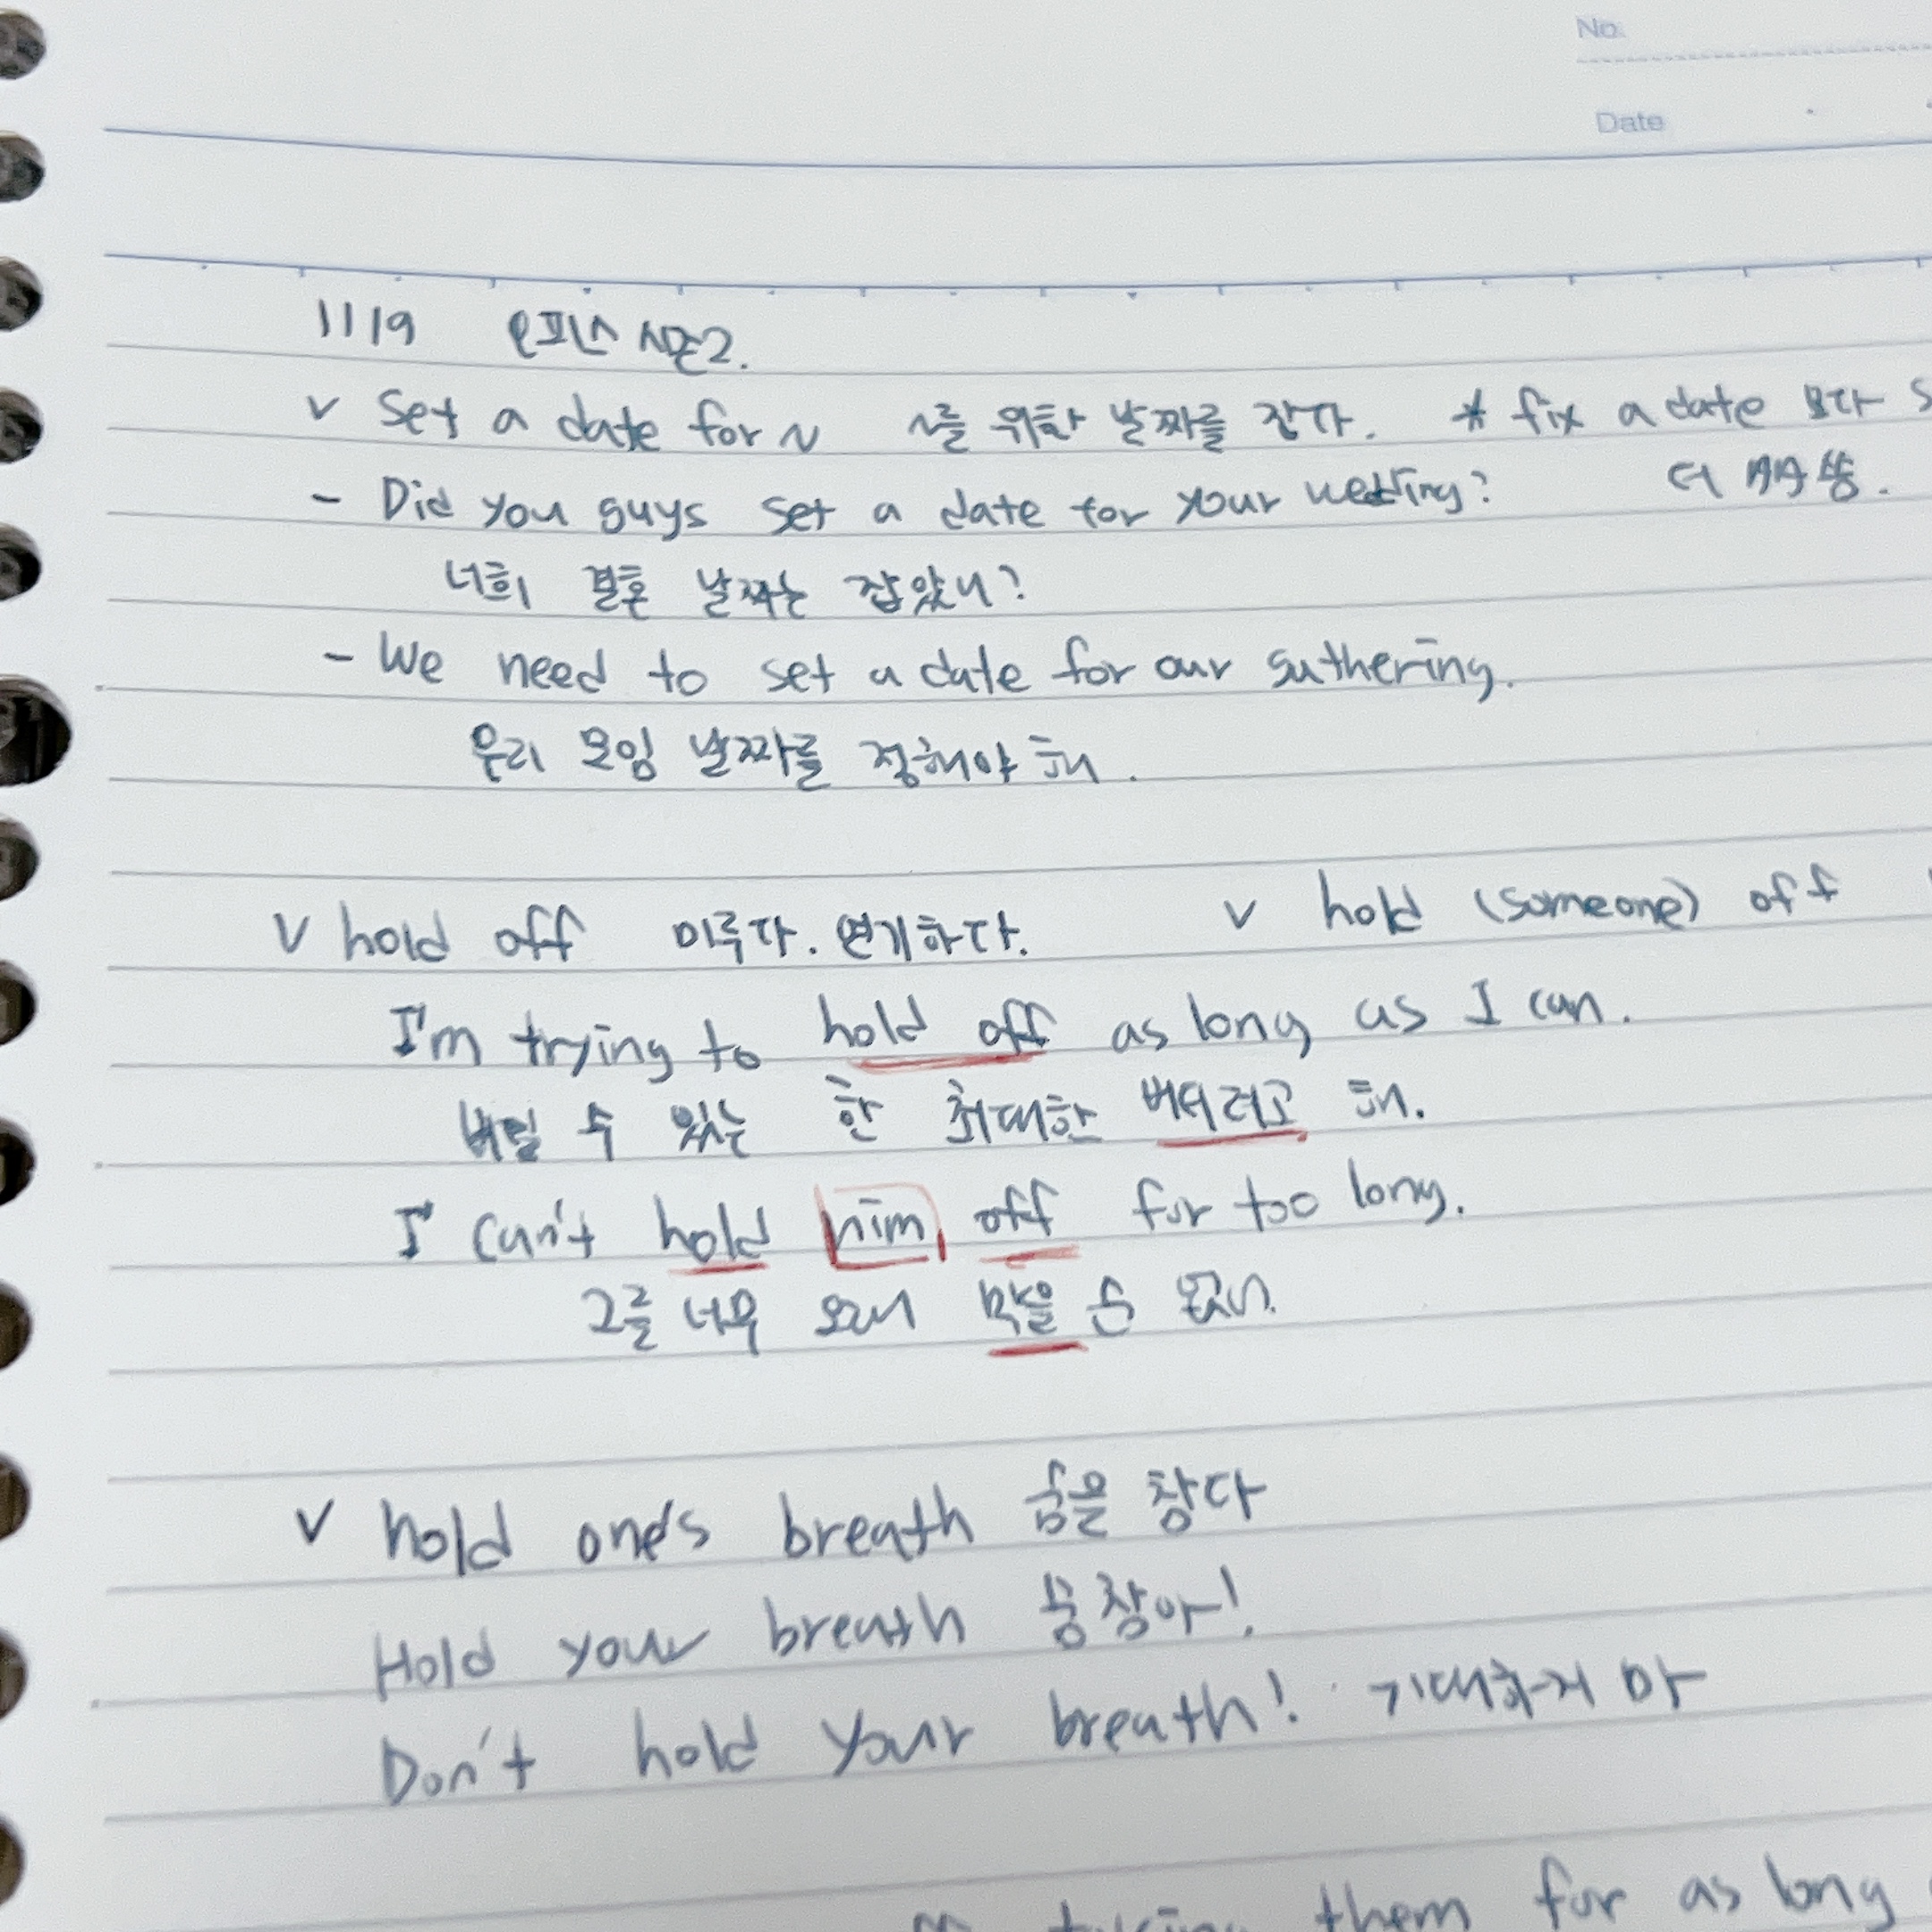 No.
Date
1119 오피스 시즌2.
v Set a date for ~ ~를 위한 날짜를 잡다. * fix a date 보다 s
- Did you guys set a date for your wedding? 더 많이 씀.
너희 결혼 날짜는 잡았니?
- We need to set a date for our gathering.
우리 모임 날짜를 정해야 해.
v hold off 미루다. 연기하다. v hold (someone) off
I'm trying to hold off as long as I can.
버틸 수 있는 한 최대한 버티려고 해.
I can't hold him off for too long.
그를 너무 오래 막을 순 없어.
v hold one's breath 숨을 참다
Hold your breath 숨 참아!
Don't hold your breath! 기대하지 마
them for as long